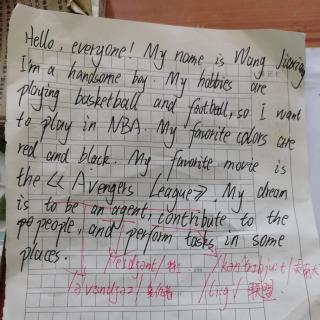 Hello, everyone! My name is Wang
I'm a handsome boy. My hobbies are
playing basketball and football, so I want
to play in NBA. My favorite colors are
red and black. My favorite movie is
the << Avengers League >>. My dream
is to be an agent, contribute to the
people, and perform tasks in some
places.